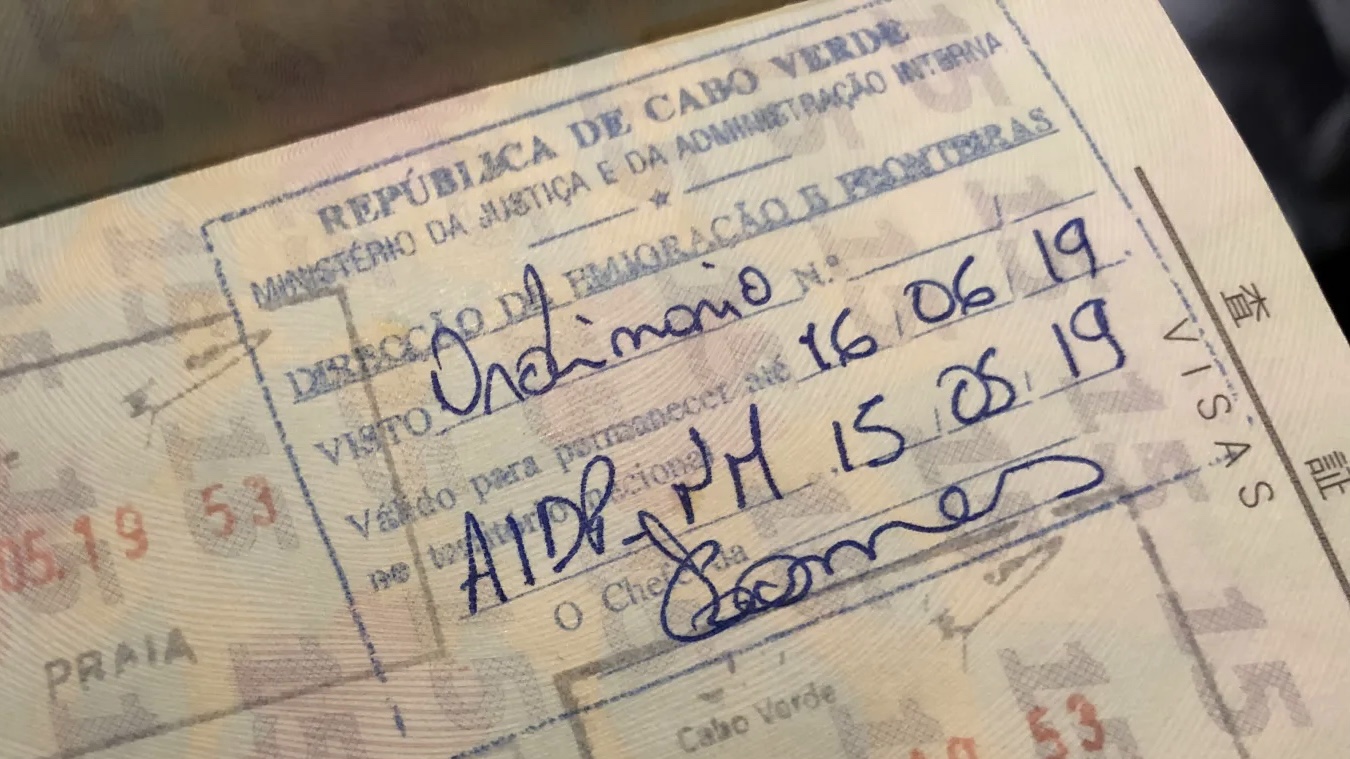 REPÚBLICA DE CABO VERDE
MINISTÉRIO DA JUSTIÇA E DA ADMINISTRAÇÃO INTERNA
DIRECÇÃO DE EMIGRAÇÃO E FRONTEIRAS
VISTO Ordinario N.º /
Válido para permanecer até 16 / 06 / 19
no território nacional
AIDP-NM 15 / 05 / 19
O Chefe da
05.19 53
PRAIA
Cabo Verde
19 53
査証
VISAS
15
15